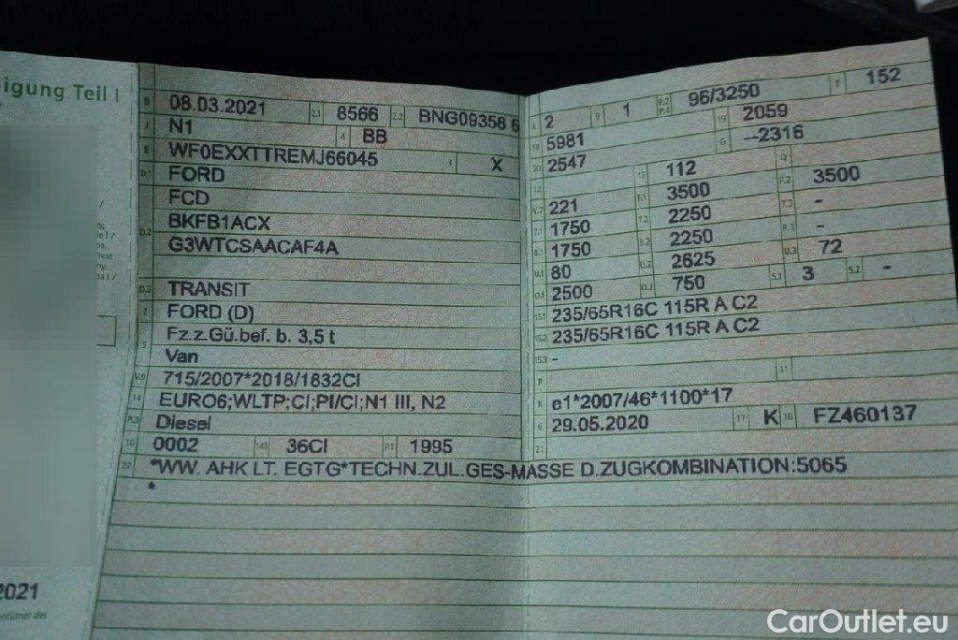 igung Teil I
B 08.03.2021 2.1 8566 2.2 BNG09356 6
J N1 4 BB
E WF0EXXTTREMJ66045 3 X
D.1 FORD
FCD
D.2 BKFB1ACX
G3WTCSAACAF4A
D.3 TRANSIT
2 FORD (D)
Fz.z.Gü.bef. b. 3,5 t
5 Van
V.9 715/2007*2018/1832CI
14 EURO6;WLTP;CI;PI/CI;N1 III, N2
P.3 Diesel
10 0002 14.1 36CI P.1 1995
22 *WW. AHK LT. EGTG*TECHN.ZUL.GES-MASSE D.ZUGKOMBINATION:5065
*
L 2 9 1 P.2 P.4 96/3250 T 152
18 5981 19 2059
20 2547 G --2316
12 13 112 Q
V.7 221 F.1 3500 F.2 3500
7.1 1750 7.2 2250 7.3 -
8.1 1750 8.2 2250 8.3 -
U.1 80 U.2 2625 U.3 72
O.1 2500 O.2 750 S.1 3 S.2 -
15.1 235/65R16C 115R A C2
15.2 235/65R16C 115R A C2
15.3 -
R 11
K e1*2007/46*1100*17
6 29.05.2020 17 K 16 FZ460137
21
2021
entümer des
CarOutlet.eu